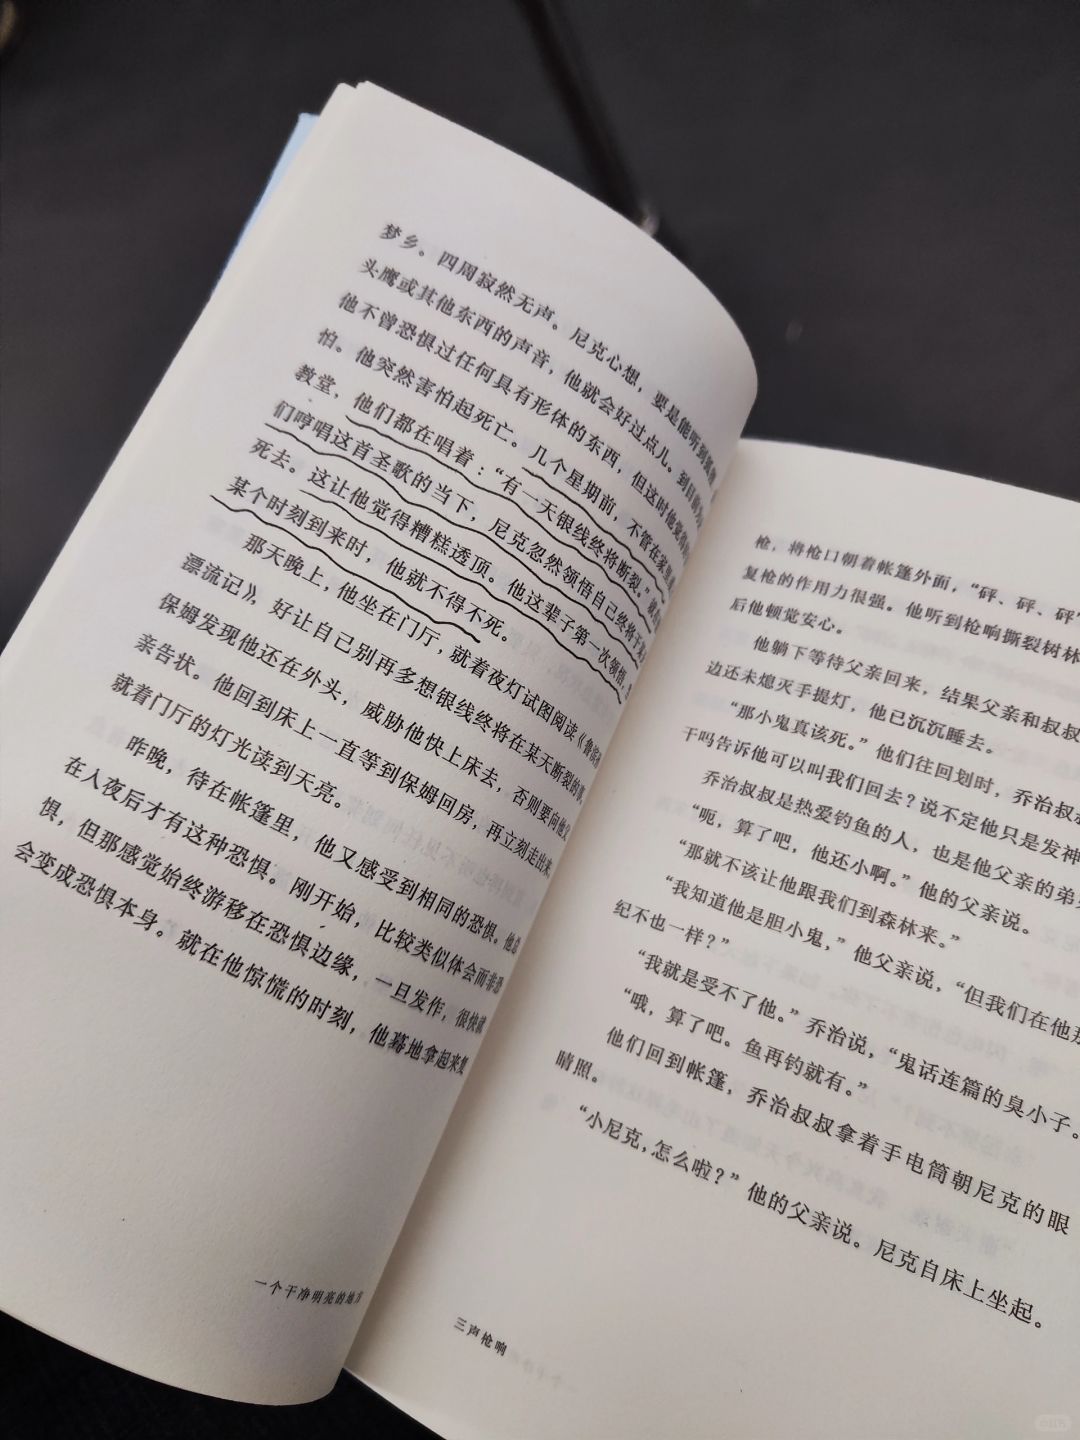 梦乡。四周寂然无声。尼克心想，要是能听到狐狸、
头鹰或其他东西的声音，他就会好过点儿。到目前为
他不曾恐惧过任何具有形体的东西，但这时他变得
怕。他突然害怕起死亡。几个星期前，不管在家里
教堂，他们都在唱着：“有一天银线终将断裂。”就在
们哼唱这首圣歌的当下，尼克忽然领悟自己终将于
死去。这让他觉得糟糕透顶。他这辈子第一次领悟，
某个时刻到来时，他就不得不死。
那天晚上，他坐在门厅，就着夜灯试图阅读《鲁滨
漂流记》，好让自己别再多想银线终将在某天断裂的事。
保姆发现他还在外头，威胁他快上床去，否则要向他父
亲告状。他回到床上一直等到保姆回房，再立刻走出来
就着门厅的灯光读到天亮。
昨晚，待在帐篷里，他又感受到相同的恐惧。他总
在入夜后才有这种恐惧。刚开始，比较类似体会而非恐
惧，但那感觉始终游移在恐惧边缘，一旦发作，很快就
会变成恐惧本身。就在他惊慌的时刻，他蓦地拿起来复
一个干净明亮的地方
枪，将枪口朝着帐篷外面，“砰、砰、砰”
复枪的作用力很强。他听到枪响撕裂树林
后他顿觉安心。
他躺下等待父亲回来，结果父亲和叔叔
边还未熄灭手提灯，他已沉沉睡去。
“那小鬼真该死。”他们往回划时，乔治叔叔
干吗告诉他可以叫我们回去？说不定他只是发神
乔治叔叔是热爱钓鱼的人，也是他父亲的弟弟
“呃，算了吧，他还小啊。”他的父亲说。
“那就不该让他跟我们到森林来。”
“我知道他是胆小鬼，”他父亲说，“但我们在他那
纪不也一样？”
“我就是受不了他。”乔治说，“鬼话连篇的臭小子。
“哦，算了吧。鱼再钓就有。”
他们回到帐篷，乔治叔叔拿着手电筒朝尼克的眼
睛照。
“小尼克，怎么啦？”他的父亲说。尼克自床上坐起。
三声枪响